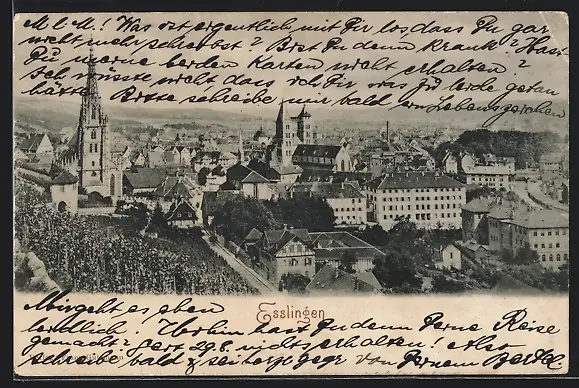 M. l. M.! Was ist eigentlich mit Dir los dass Du gar
nicht mehr schreibst? Bist Du denn krank? Hast
Du meine beiden Karten nicht erhalten?
Ich wüsste nicht dass ich Dir was zu leide getan
hätte. Bitte schreibe mir bald ein Lebenszeichen
Esslingen
Mir geht es eben
leidlich. Wohin hast Du denn Deine Reise
gemacht? hast nichts erhalten! Also
schreibe bald & sei herzl gegr von Deinem